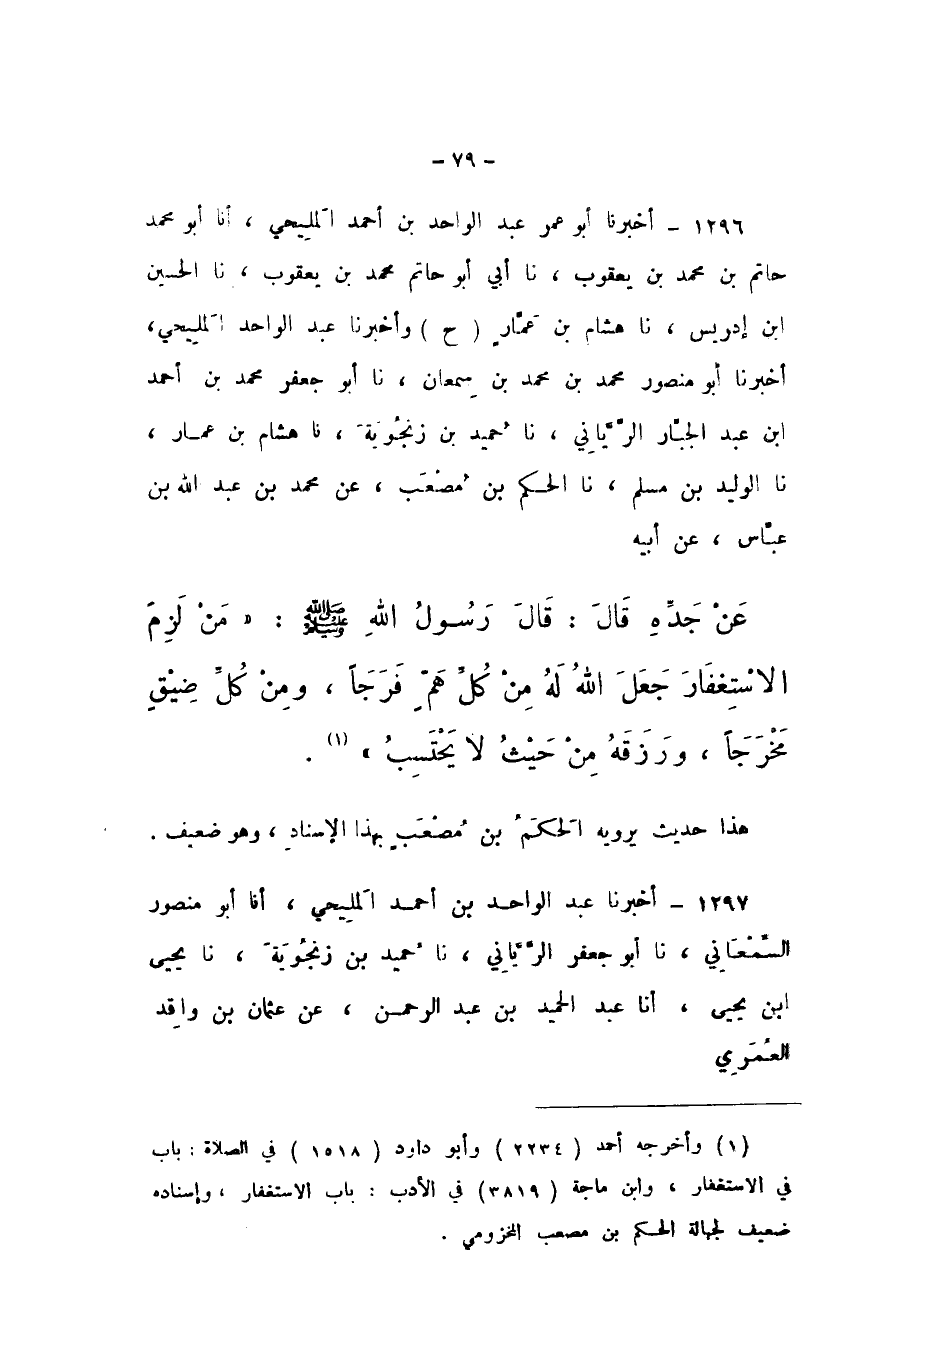 - ٧٩ -
١٢٩٦ - أخبرنا أبو عمر عبد الواحد بن أحمد المَليحي ، أنا أبو محمد
حاتم بن محمد بن يعقوب ، نا أبي أبو حاتم محمد بن يعقوب ، نا الحسين
ابن إدريس ، نا هشام بن عَمّارٍ ( ح ) وأخبرنا عبد الواحد المَليحي،
أخبرنا أبو منصور محمد بن محمد بن سِمعان ، نا أبو جعفر محمد بن أحمد
ابن عبد الجبّار الرَّيّاني ، نا حُميد بن زنجُويَة ، نا هشام بن عمار ،
نا الوليد بن مسلم ، نا الحكم بن مُصْعَب ، عن محمد بن عبد الله بن
عبّاس ، عن أبيه
عَنْ جَدِّهِ قَالَ : قَالَ رَسُولُ اللهِ ﷺ : « مَنْ لَزِمَ
الاسْتِغفَارَ جَعَلَ اللهُ لَهُ مِنْ كُلِّ هَمٍّ فَرَجَاً ، ومِنْ كُلِّ ضِيْقٍ
مَخْرَجَاً ، ورَزَقَهُ مِنْ حَيْثُ لا يَحْتَسِبُ » (١) .
هذا حديث يرويه الحَكَمُ بن مُصْعَبٍ بهذا الإسنادِ ، وهو ضعيف .
١٢٩٧ - أخبرنا عبد الواحد بن أحمد المَليحي ، أنا أبو منصور
السَّمْعَاني ، نا أبو جعفر الرَّيّاني ، نا حُميد بن زنجُويَة ، نا يحيى
ابن يحيى ، أنا عبد الحميد بن عبد الرحمن ، عن عثمان بن واقِد
العُمَرِي
(١) وأخرجه أحمد ( ٢٢٣٤ ) وأبو داود ( ١٥١٨ ) في الصلاة : باب
في الاستغفار ، وابن ماجة ( ٣٨١٩) في الأدب : باب الاستغفار ، وإسناده
ضعيف لجهالة الحكم بن مصعب المخزومي .